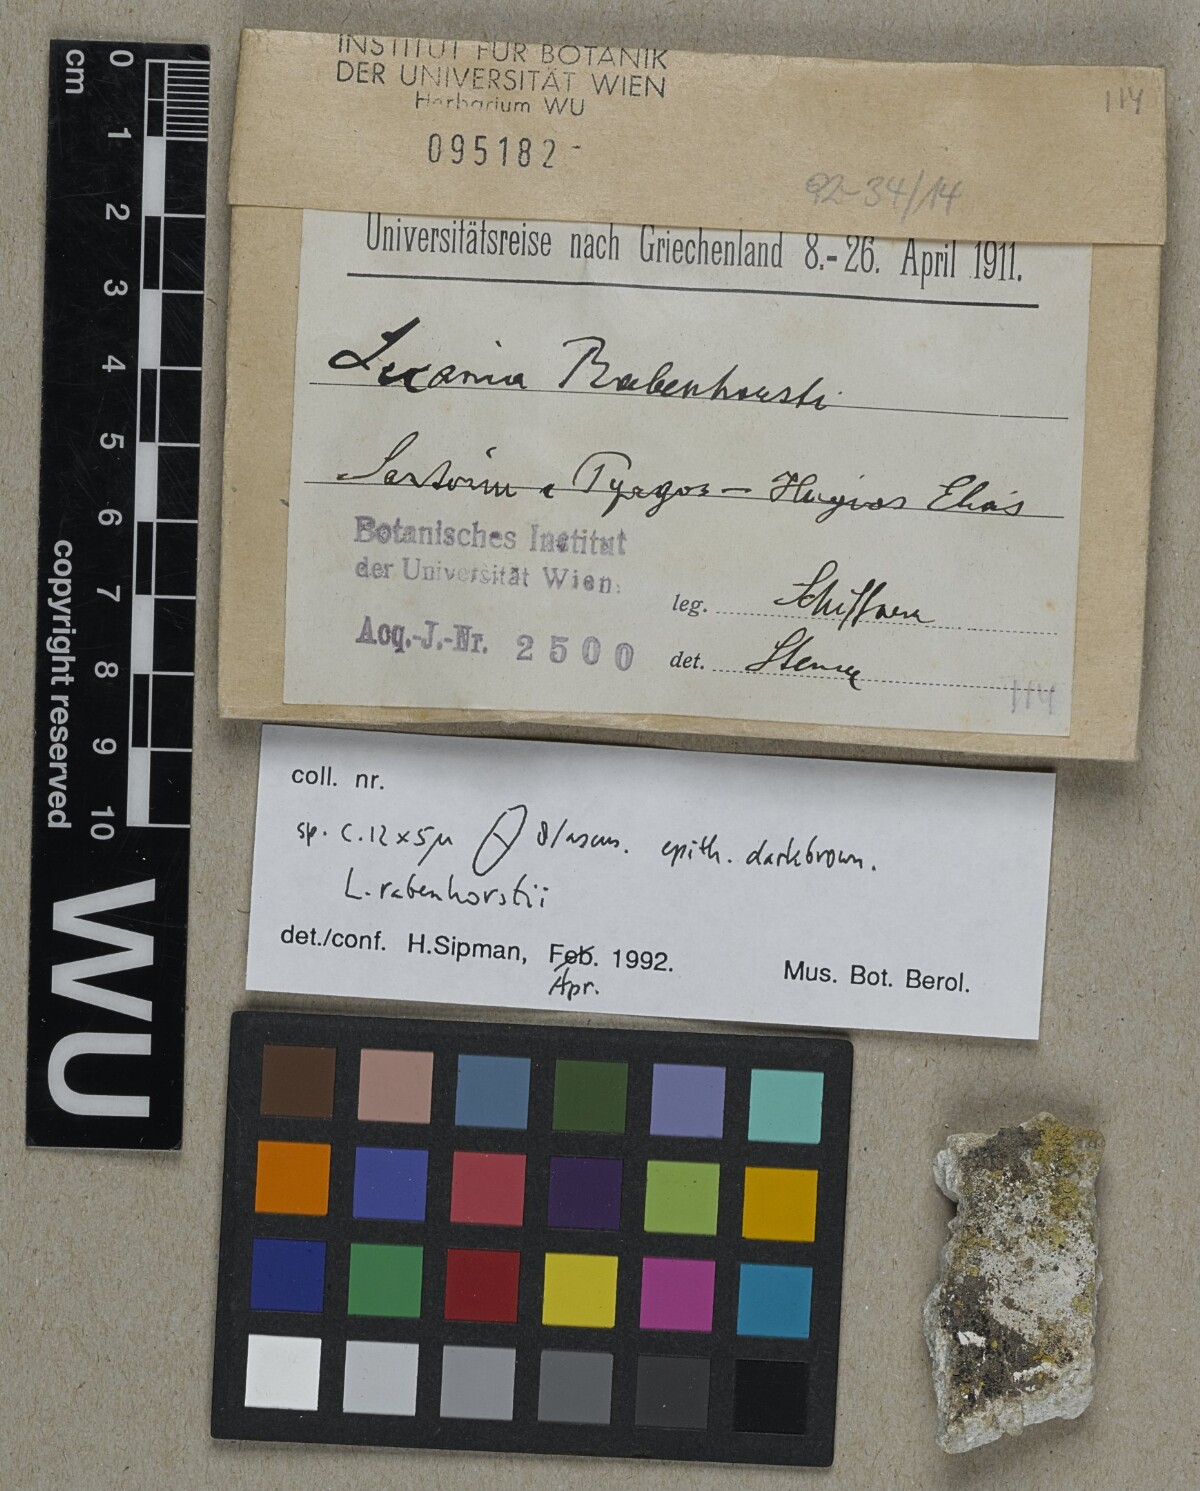 INSTITUT FÜR BOTANIK
DER UNIVERSITÄT WIEN
Herbarium WU
095182
114
92-34/14
Universitätsreise nach Griechenland 8.-26. April 1911.
Lecania Rabenhorsti
Santorin Pyrgos - Hagios Elias
Botanisches Institut
der Universität Wien.
Acq.-J.-Nr. 2500
leg. Schiffner
det. Steiner
114
coll. nr.
sp. c. 12 x 5 µ 8/ascus. epith. darkbrown.
L. rabenhorstii
det./conf. H.Sipman, Feb. 1992.
Apr.
Mus. Bot. Berol.
cm
0 1 2 3 4 5 6 7 8 9 10
copyright reserved
WU